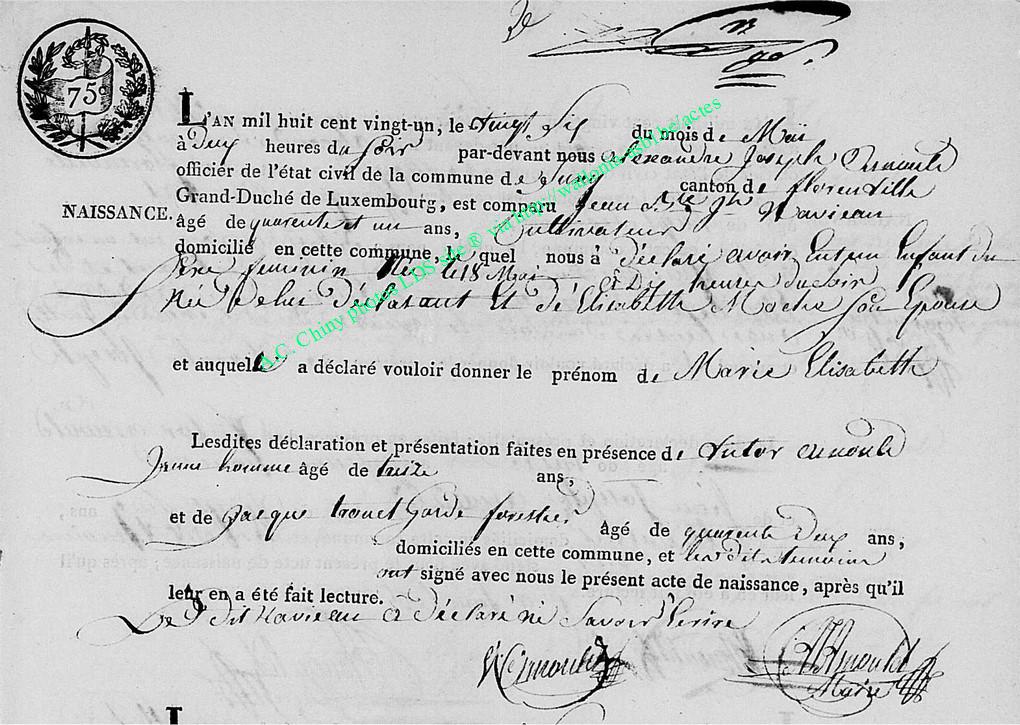 75c
L'AN mil huit cent vingt-un, le vingt six du mois de Mai
à Deux heures du soir par-devant nous Alexandre Joseph Arnould
officier de l'état civil de la commune de canton de florenville
Grand-Duché de Luxembourg, est comparu Jean Bte Jh Havieau
NAISSANCE.
âgé de quarente et un ans, Cultivateur
domicilié en cette commune, le quel nous à déclaré avoir Eut un Enfant du
sexe feminin Née le 18 Mai à Dix heures du soir
Née de lui Déclarant Et de Elisabeth son Epouse
et auquelle a déclaré vouloir donner le prénom de Marie Elisabeth
Lesdites déclaration et présentation faites en présence de Victor Arnould
Jeune homme âgé de treize ans,
et de Jacque trouet Garde forestier âgé de quarente Deux ans,
domiciliés en cette commune, et les dits temoins
ont signé avec nous le présent acte de naissance, après qu'il
leur en a été fait lecture.
Le Dit Havieau à Déclaré ne Savoir Ecrire
V Arnould
AJ Arnould
Mayre
L
A.C. Chiny photos LDS site ® via http://wallonia-asbl.be/actes